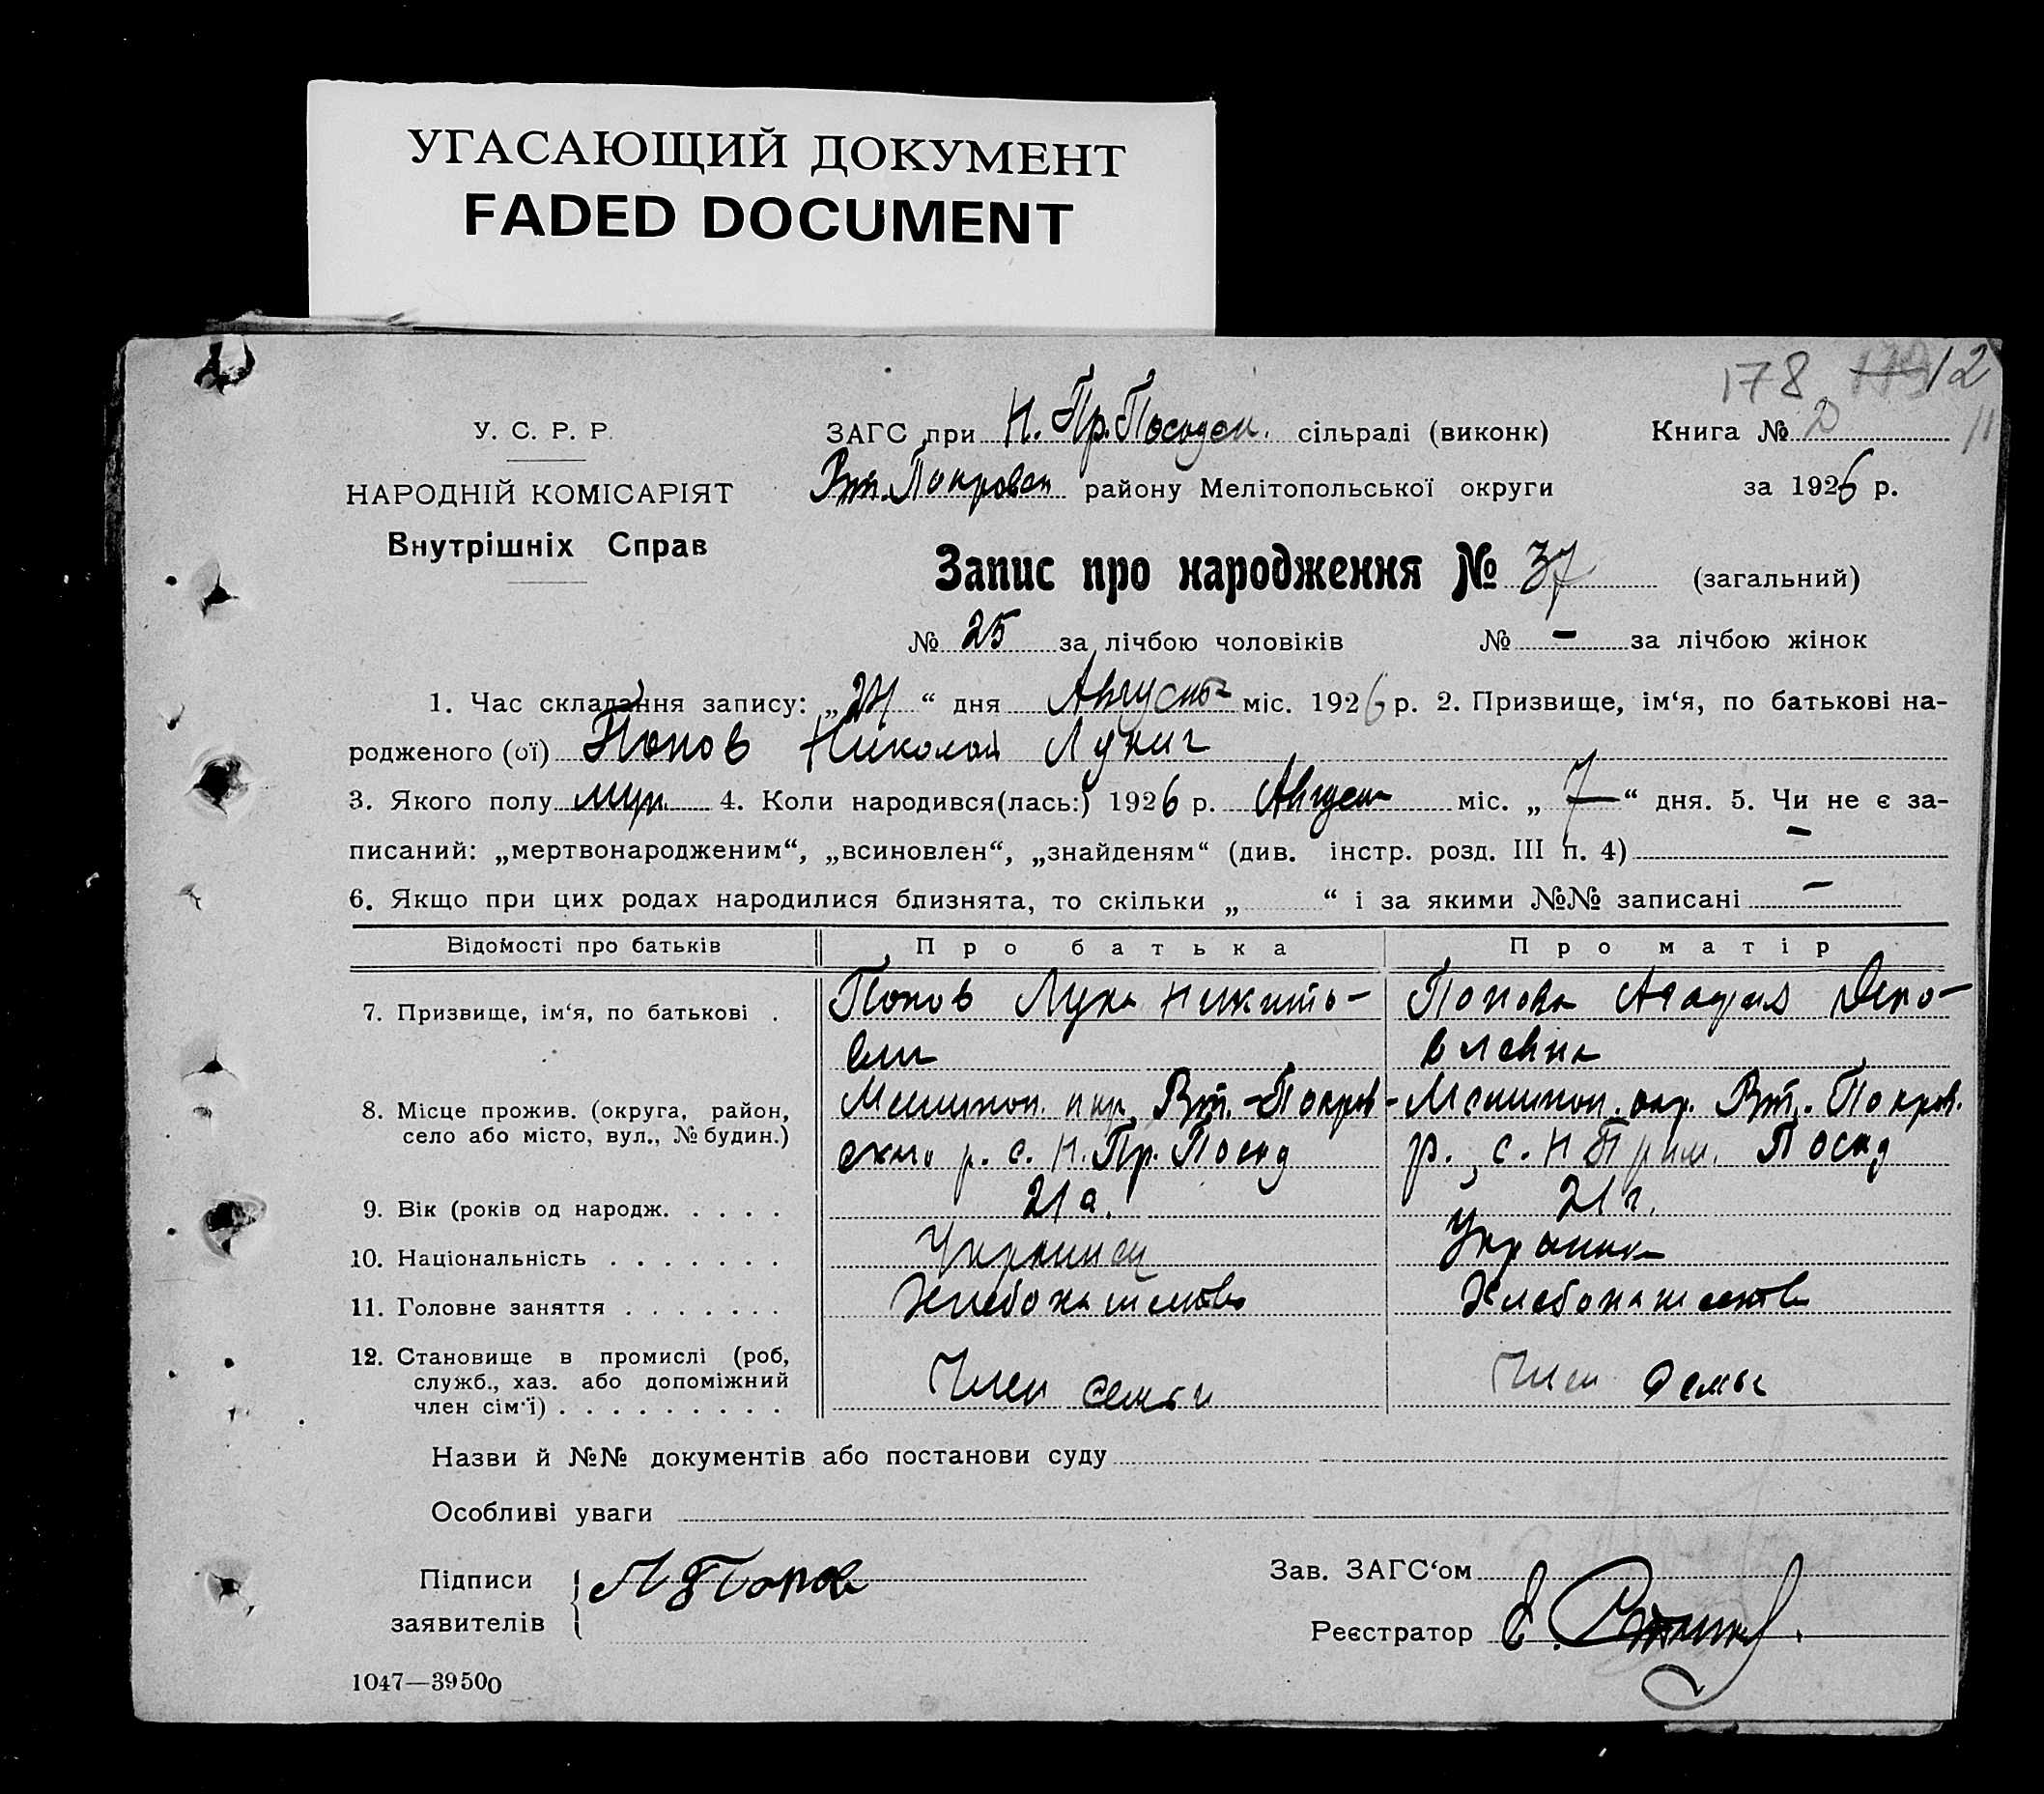 УГАСАЮЩИЙ ДОКУМЕНТ
FADED DOCUMENT
178 12
У. С. Р. Р.
ЗАГС при Н. Пр. Посадск. сільраді (виконк)
Книга № 2
11
НАРОДНІЙ КОМІСАРІЯТ
Вт. Покровск района Мелітопольської округи
за 1926 р.
Внутрішніх Справ
Запис про народження № 37 (загальний)
№ 25 за лічбою чоловіків № – за лічбою жінок
1. Час складання запису: „ “ дня Август міс. 1926 р. 2. Призвище, ім‘я, по батькові на-
родженого (ої) Попов Николай Лукич
3. Якого полу муж. 4. Коли народився(лась:) 1926 р. Август міс. „ 7 “ дня. 5. Чи не є за-
писаний: „мертвонародженим“, „всиновлен“, „знайденям“ (див. інстр. розд. III п. 4) –
6. Якщо при цих родах народилися близнята, то скільки „ “ і за якими №№ записані –
Відомості про батьків Про батька Про матір
7. Призвище, ім‘я, по батькові . Попов Лука Никито- Попова
вич
8. Місце прожив. (округа, район, Мелитоп. окр. Вт.-Покров- Мелитоп. окр. Вт. Покров.
село або місто, вул., № будин.) ского р. с. Н. Пр. Посад р., с. Н Прим. Посад
9. Вік (років од народж. . . . . 21 г. 21 г.
10. Національність . . . . . . . Украинец Украинка
11. Головне заняття . . . . . . . Хлебопашество Хлебопашество
12. Становище в промислі (роб,
служб., хаз. або допоміжний Член семьи Член семьи
член сім‘ї) . . . . . . . . .
Назви й №№ документів або постанови суду
Особливі уваги
Підписи Попов Зав. ЗАГС‘ом
заявителів Реєстратор
1047—39500